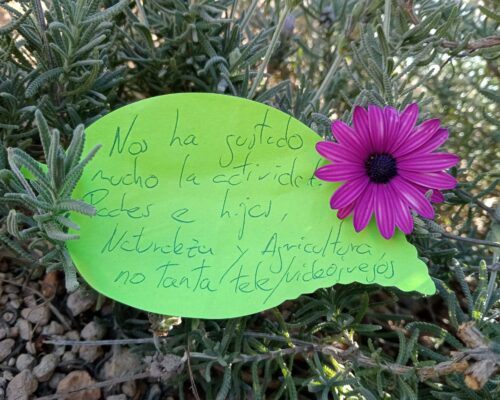 Nos ha gustado
mucho la actividad!
Padres e hijos,
Naturaleza y Agricultura,
no tanta/tele/videojuegos